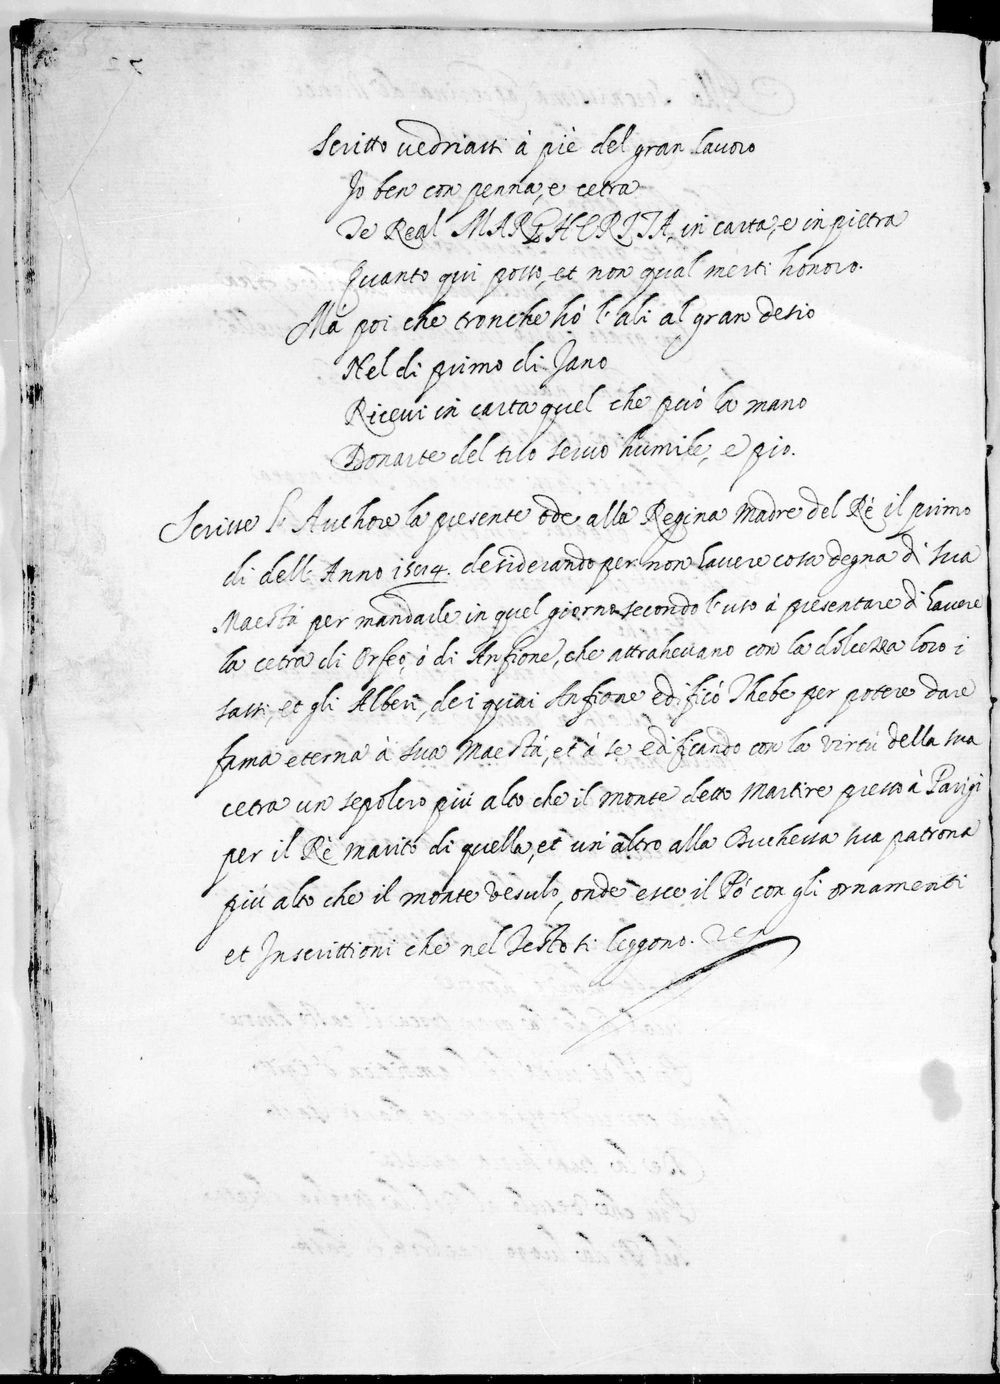 Scritto vedriasti à piè del gran lavoro
Io ben con penna, e cetra
Te Real MARGHERITA, in carta, e in pietra
Quanto qui posso, et non qual merti honoro.
Ma poi che tronche hò l'ali al gran desio
Nel di primo di Jano
Ricevi in carta quel che può la mano
Donarte del tuo servo humile, e pio.
Scrisse l'Authore la presente ode alla Regina Madre del Rè il primo
di dell'Anno desiderando per non havere cosa degna di sua
Maestà per mandarle in quel giorno secondo l'uso à presentare di havere
la cetra di Orfeo, ò di Anfione, che attrahevano con la dolcezza loro i
sassi, et gli Alberi, de i quai Anfione edificò Thebe per potere dare
fama eterna à sua Maestà, et à se edificando con la virtù della sua
cetra un sepolcro più alto che il monte detto Martire presso à Parigi
per il Rè marito di quella, et un'altro alla Duchessa sua patrona
più alto che il monte Vesulo, onde esce il Pò con gli ornamenti
et Inscrittioni che nel Testo si leggono.